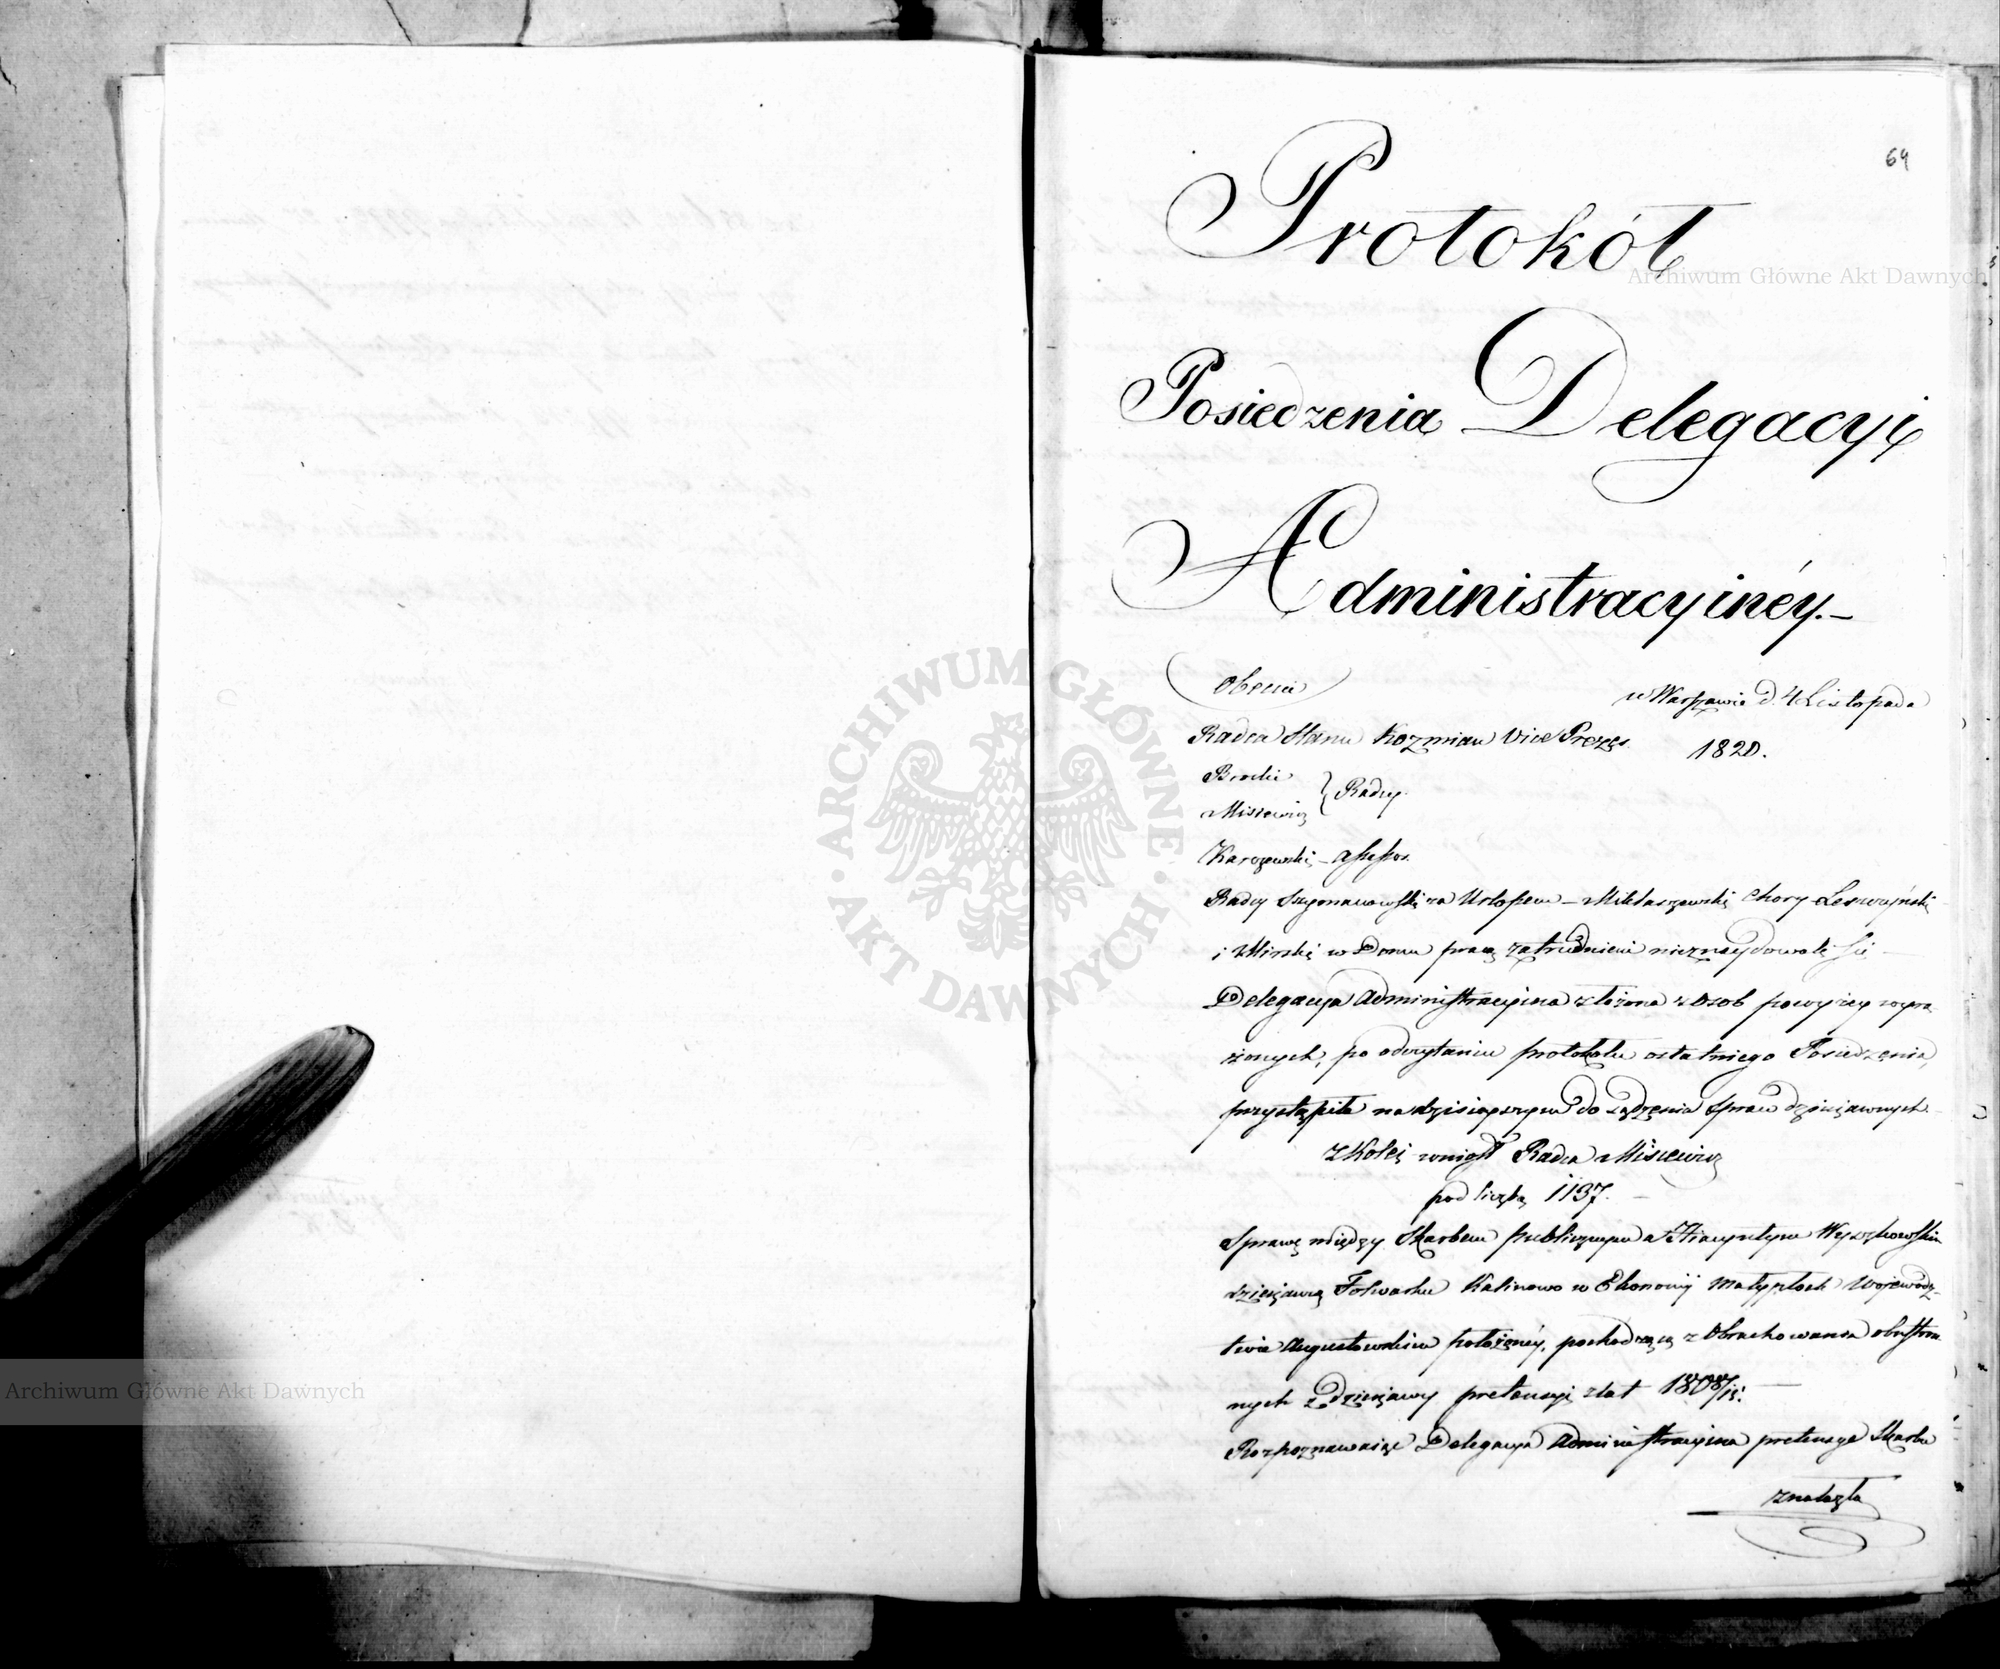 64
Protokół
Posiedzenia Delegacyi
Administracyinéy.—
Obecni
w Warszawie d. 4 Listopada
1820.
Radca Stanu Kozmian Vice Prezes.
Brocki
Misiewicz } Radcy.
Karczewski – Assessor.
Radcy Szymanowski za Urlopem – Miklaszewski Chory Leszczyński
i Mirski w Domu pracą zatrudnieni nieznaydowali się —
Delegacya Administracyina złożona z Osob powyżey wyra-
żonych, po odczytaniu protokułu ostatniego Posiedzenia,
przystąpiła na dzisieyszym do sądzenia Spraw dzierżawnych.
z Kolei wniosł Radca Misiewicz
pod liczbą 1137. —
Sprawę między Skarbem publicznym a Hiacyntym Wyszkowskim
dzierżawcą Folwarku Kalinowo w Ekonomij Małypłock Wojewódz-
twie Augustowskim położonéy, pochodzącą z Obrachowania obustron-
nych z dzierżawy pretensyi z lat 1808/15. —
Rozpoznawaiąc Delegacya Administracyina pretensye Skarbu
znalazła
Archiwum Główne Akt Dawnych
ARCHIWUM GŁÓWNE · AKT DAWNYCH ·
Archiwum Główne Akt Dawnych